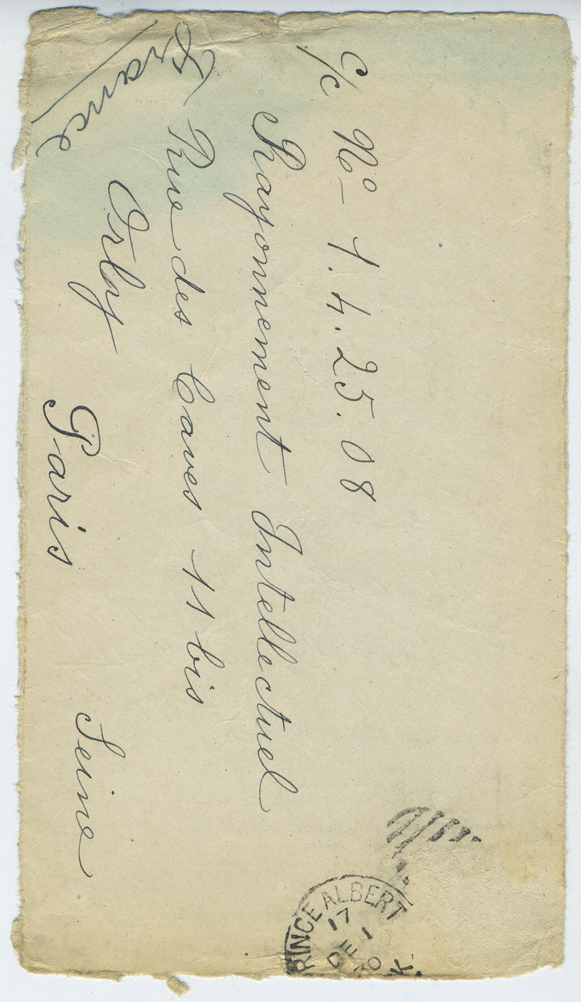 c/c Nº 1.4.25.08
Rayonnement Intellectuel
Rue des Caves 11 bis
Orly Paris Seine
France
PRINCE ALBERT
17
DE 1